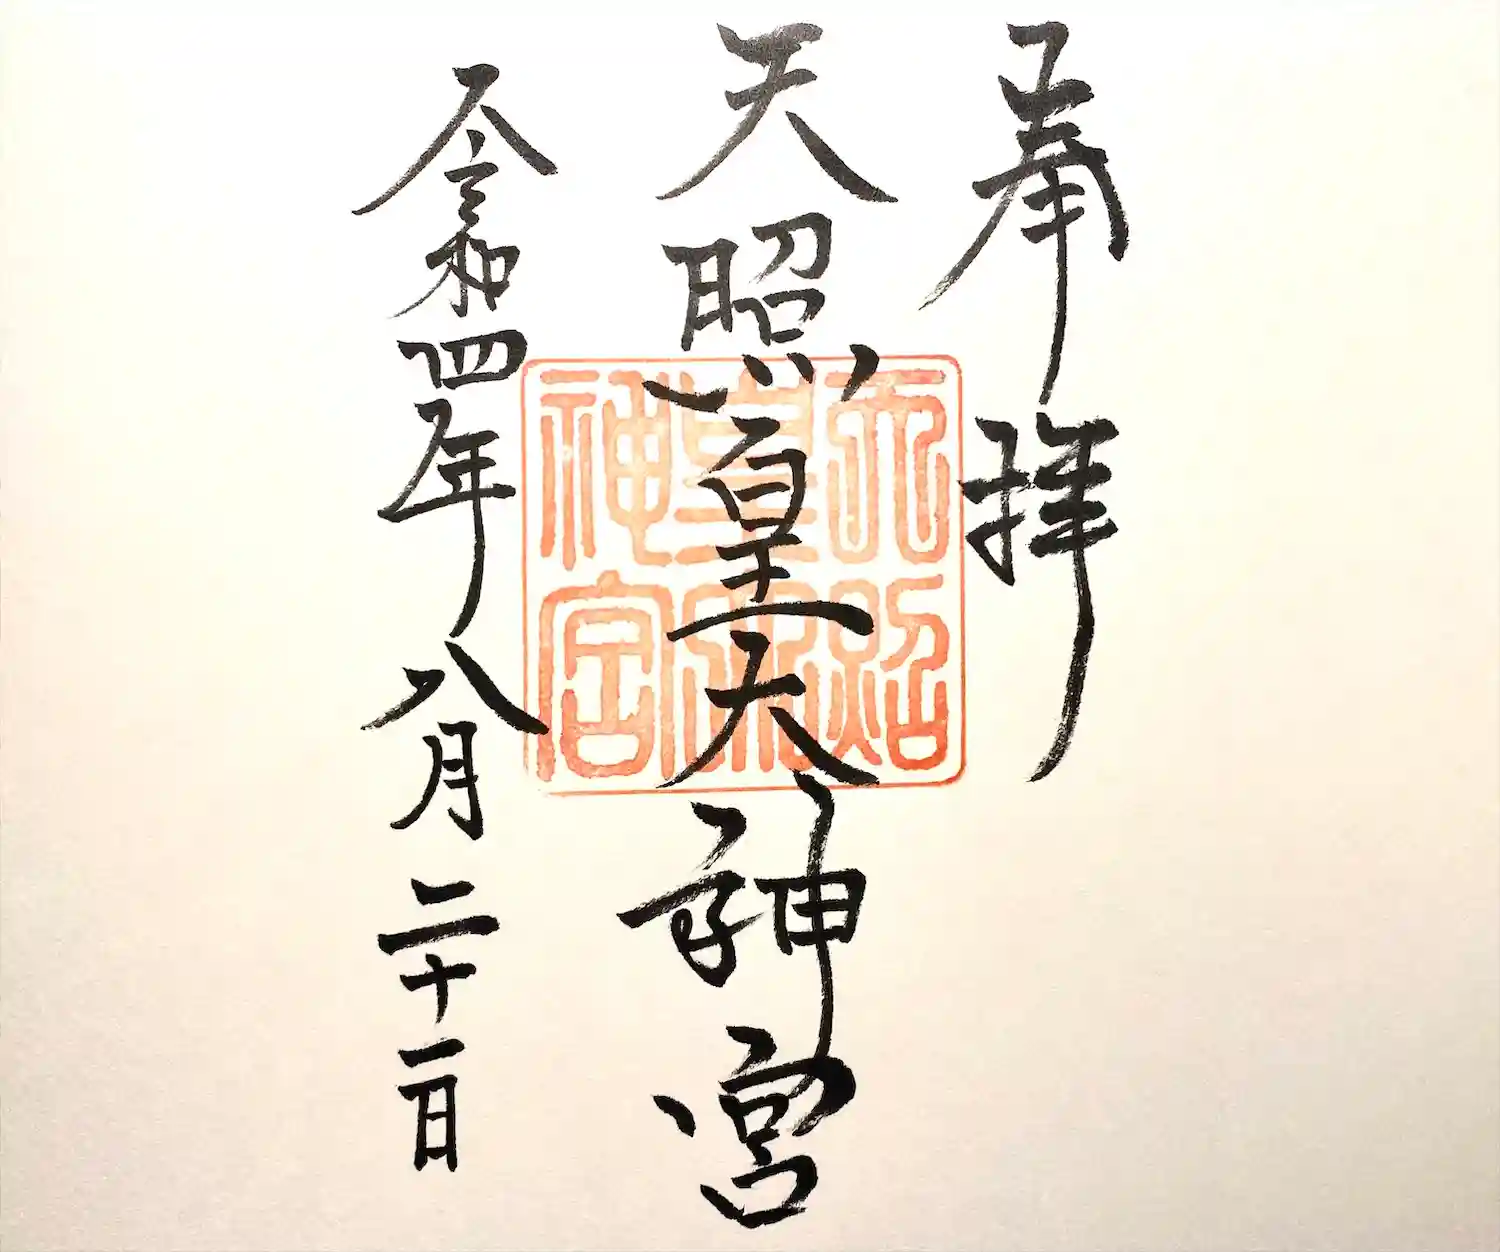 奉拝
天照皇大神宮
令和四年八月二十一日
天照
皇大
神宮